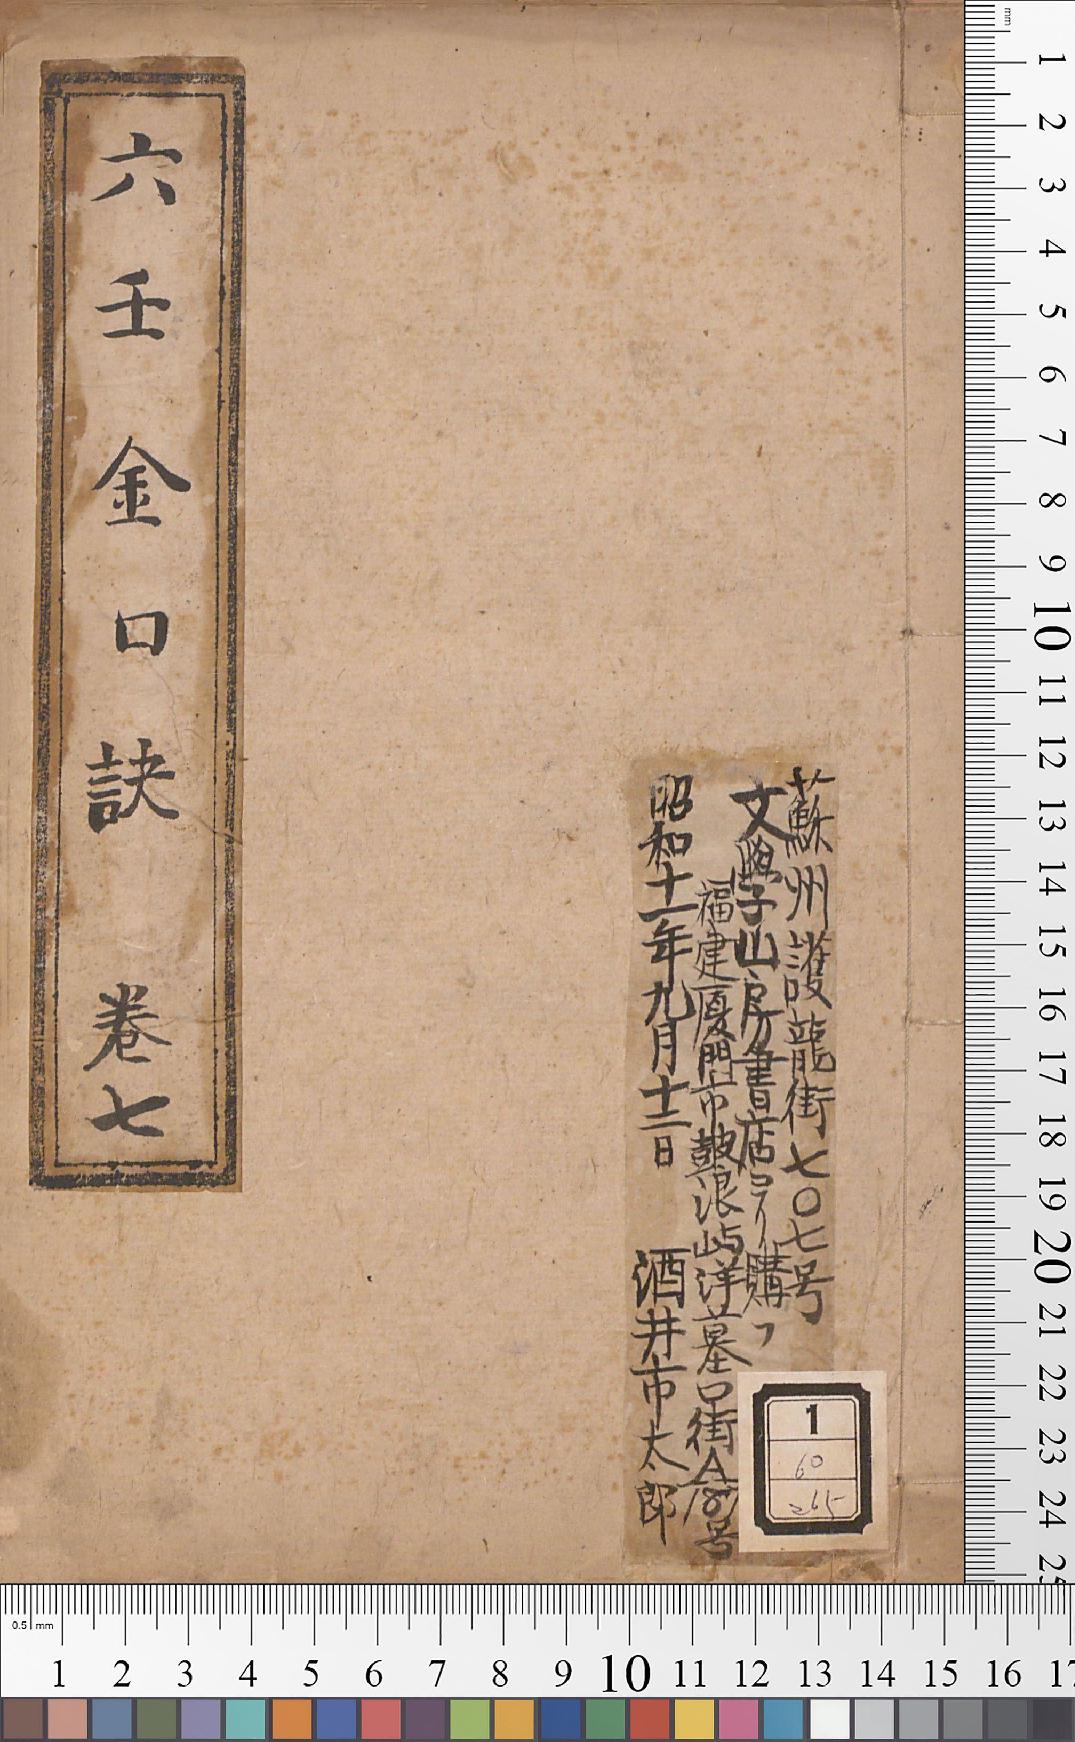 六壬金口訣 卷七
蘇州護龍街七〇七号
文學山房書店ヨリ購フ
福建廈門市鼓浪嶼洋墓口街A187号
昭和十一年九月十二日 酒井市太郎
1
60
265
mm
1 2 3 4 5 6 7 8 9 10 11 12 13 14 15 16 17 18 19 20 21 22 23 24 25
0.5 mm
1 2 3 4 5 6 7 8 9 10 11 12 13 14 15 16 17